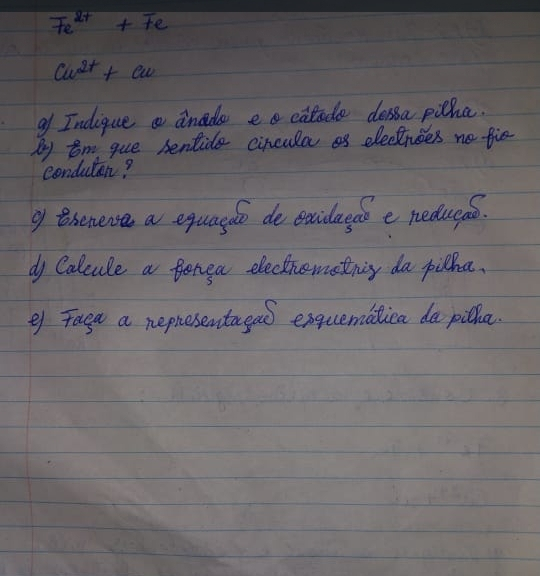 Fe²⁺ + Fe
Cu²⁺ + cu
a) Indique o ânodo e o cátodo dessa pilha.
b) Em que sentido circula os electrões no fio
condutor?
c) Escreva a equação de oxidação e redução.
d) Calcule a força electromotriz da pilha.
e) Faça a representação esquemática da pilha.